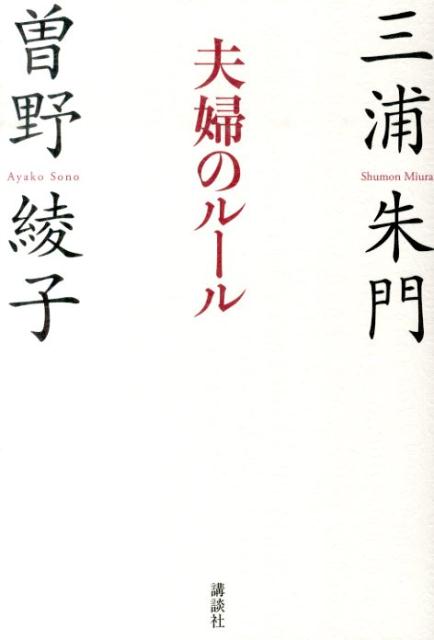 三浦朱門
Shumon Miura
夫婦のルール
曽野綾子
Ayako Sono
講談社